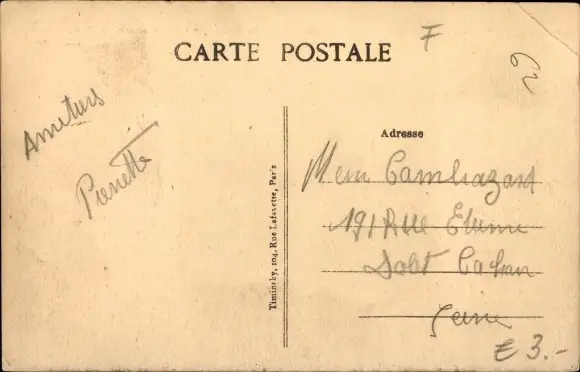 CARTE POSTALE
F
62
Amitiers
Pierrette
Timinsky, 104, Rue Lafayette, Paris
Adresse
Mem Cambazard
191 Rue Etienne
Dolet Cachan
Seine
€ 3.-